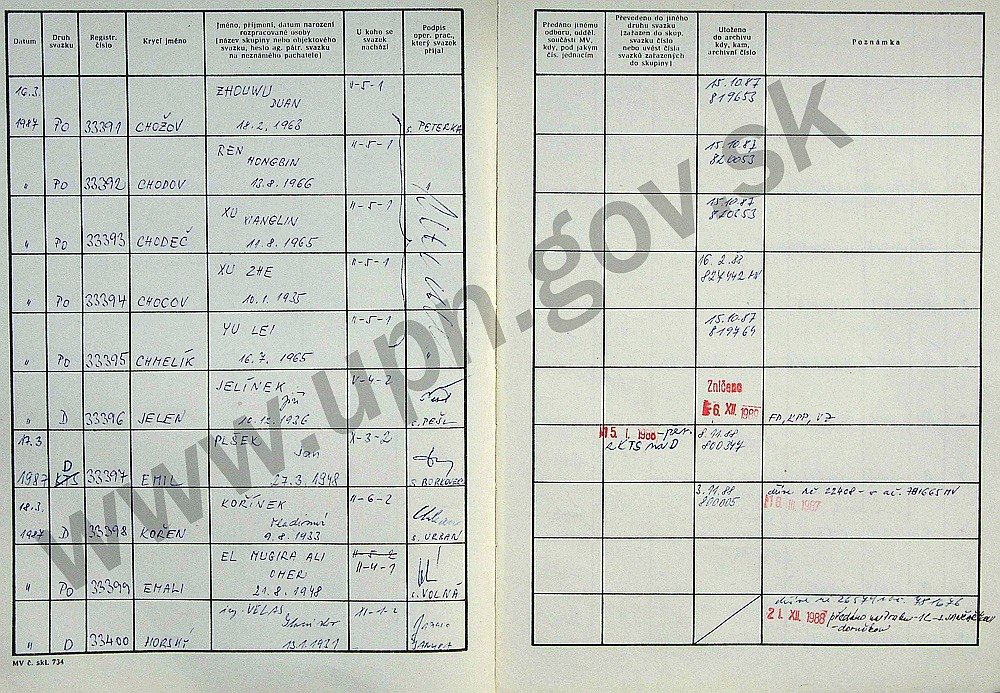 Datum
Druh
svazku
Registr.
číslo
Krycí jméno
Jméno, příjmení, datum narození
rozpracované osoby
(název skupiny nebo objektového
svazku, heslo ag. pátr. svazku
na neznámého pachatele)
U koho se
svazek
nachází
Podpis
oper. prac.,
který svazek
přijal
Předáno jinému
odboru, odděl.
součásti MV,
kdy, pod jakým
čís. jednacím
Převedeno do jiného
druhu svazku
(zařazen do skup.
svazku číslo
nebo uvést čísla
svazků zařazených
do skupiny)
Uloženo
do archivu
kdy, kam,
archivní číslo
Poznámka
16.3.
1987 PO 33391 CHOŽOV
ZHOUWU
JUAN
18.2.1963
II-5-1
s. PETERKA
15.10.87
819653
" PO 33392 CHODOV
REN
HONGBIN
13.8.1966
II-5-1
"
15.10.87
820053
" PO 33393 CHODEČ
XU
XIANGLIN
11.8.1965
II-5-1
15.10.87
" PO 33394 CHOCOV
XU ZHE
10.1.1935
II-5-1
16.2.88
" PO 33395 CHMELÍK
YU LEI
16.7.1965
II-5-1
"
15.10.87
819764
" D 33396 JELEN
JELÍNEK
Jiří
10.12.1936
V-4-2
s. PEŠL
Zničeno
6. XII. 1989
17.3.
1987 D KTS 33397 EMIL
PLŠEK
Jan
27.3.1948
X-3-2
s. BORKOVEC
15. I. 1988
z KTS na D
8.11.88
800347
18.3.
1987 D 33398 KOŘEN
KOŘÍNEK
Vladimír
9.8.1933
II-6-2
s. URBAN
3.11.88
800005
dříve rč 22408 - a ač. 781665 MV
18. III. 1987
" PO 33399 EMALI
EL MUGIRA ALI
OMER
21.8.1948
II-5-2
II-4-1
s. VOLNÁ
" D 33400 HORSKÝ
ing. VELAS
13.1.1931
21. XII. 1988 předáno
MV č. skl. 734
www.upn.gov.sk